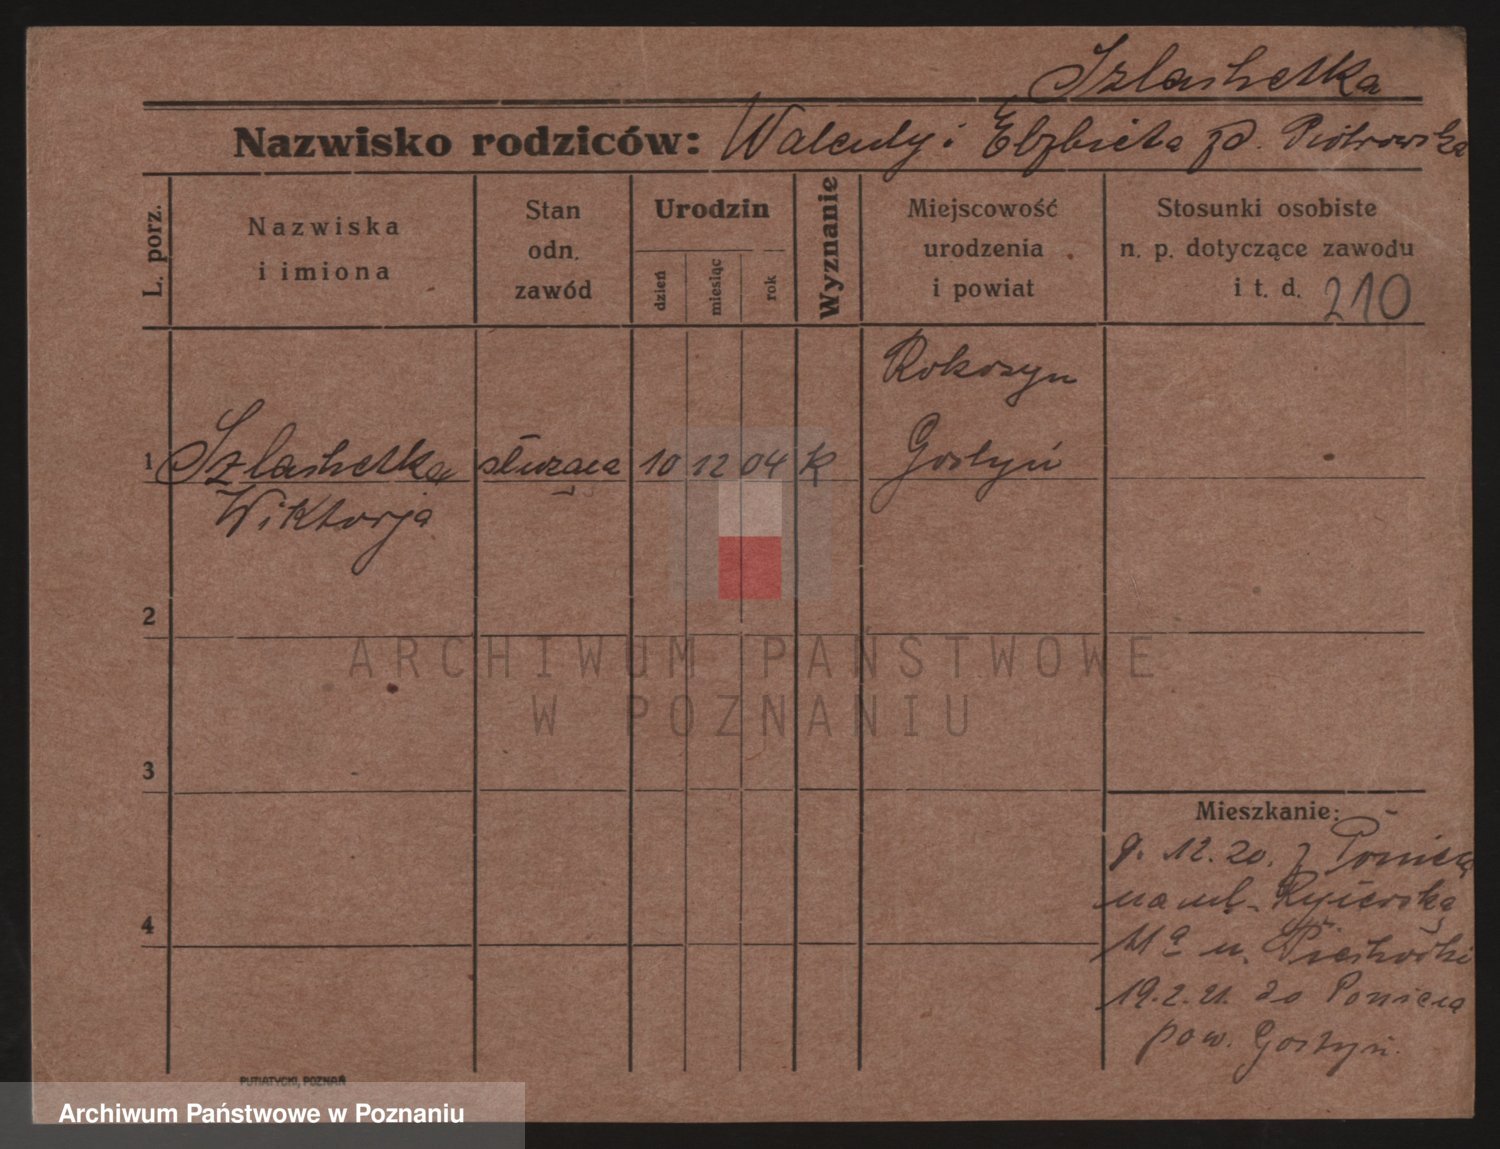 Szlachetka
Nazwisko rodziców: Walenty i Elżbieta zd. Piotrowska
L. porz.
Nazwiska
i imiona
Stan
odn.
zawód
Urodzin
dzień
miesiąc
rok
Wyznanie
Miejscowość
urodzenia
i powiat
Stosunki osobiste
n. p. dotyczące zawodu
i t. d. 210
Rokosyn
1 Szlachetka służąca 10 12 04 K Gostyń
Wiktorja
2
ARCHIWUM PAŃSTWOWE
W POZNANIU
3
Mieszkanie:
9. 12. 20. z Ponieca
na ul.
11a u.
4
19.2.21. do Ponieca
pow. Gostyń.
PUTIATYCKI, POZNAŃ
Archiwum Państwowe w Poznaniu